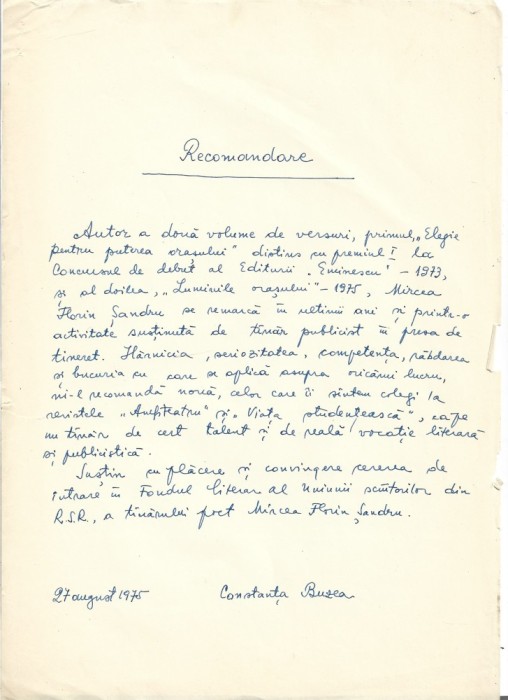 Recomandare
Autor a două volume de versuri, primul, „Elegie
pentru puterea orașului” distins cu premiul I la
Concursul de debut al Editurii „Eminescu” – 1973,
și al doilea, „Luminile orașului” – 1975, Mircea
Florin Șandru se remarcă în ultimii ani și printr-o
activitate susținută de tînăr publicist în presa de
tineret. Hărnicia, seriozitatea, competența, răbdarea
și bucuria cu care se aplică asupra oricărui lucru,
ni-l recomandă nouă, celor care îi sîntem colegi la
revistele „Amfiteatru” și „Viața studențească”, ca pe
un tînăr de cert talent și de reală vocație literară
și publicistică.
Susțin cu plăcere și convingere cererea de
intrare în Fondul literar al Uniunii scriitorilor din
R.S.R., a tînărului poet Mircea Florin Șandru.
27 august 1975 Constanța Buzea